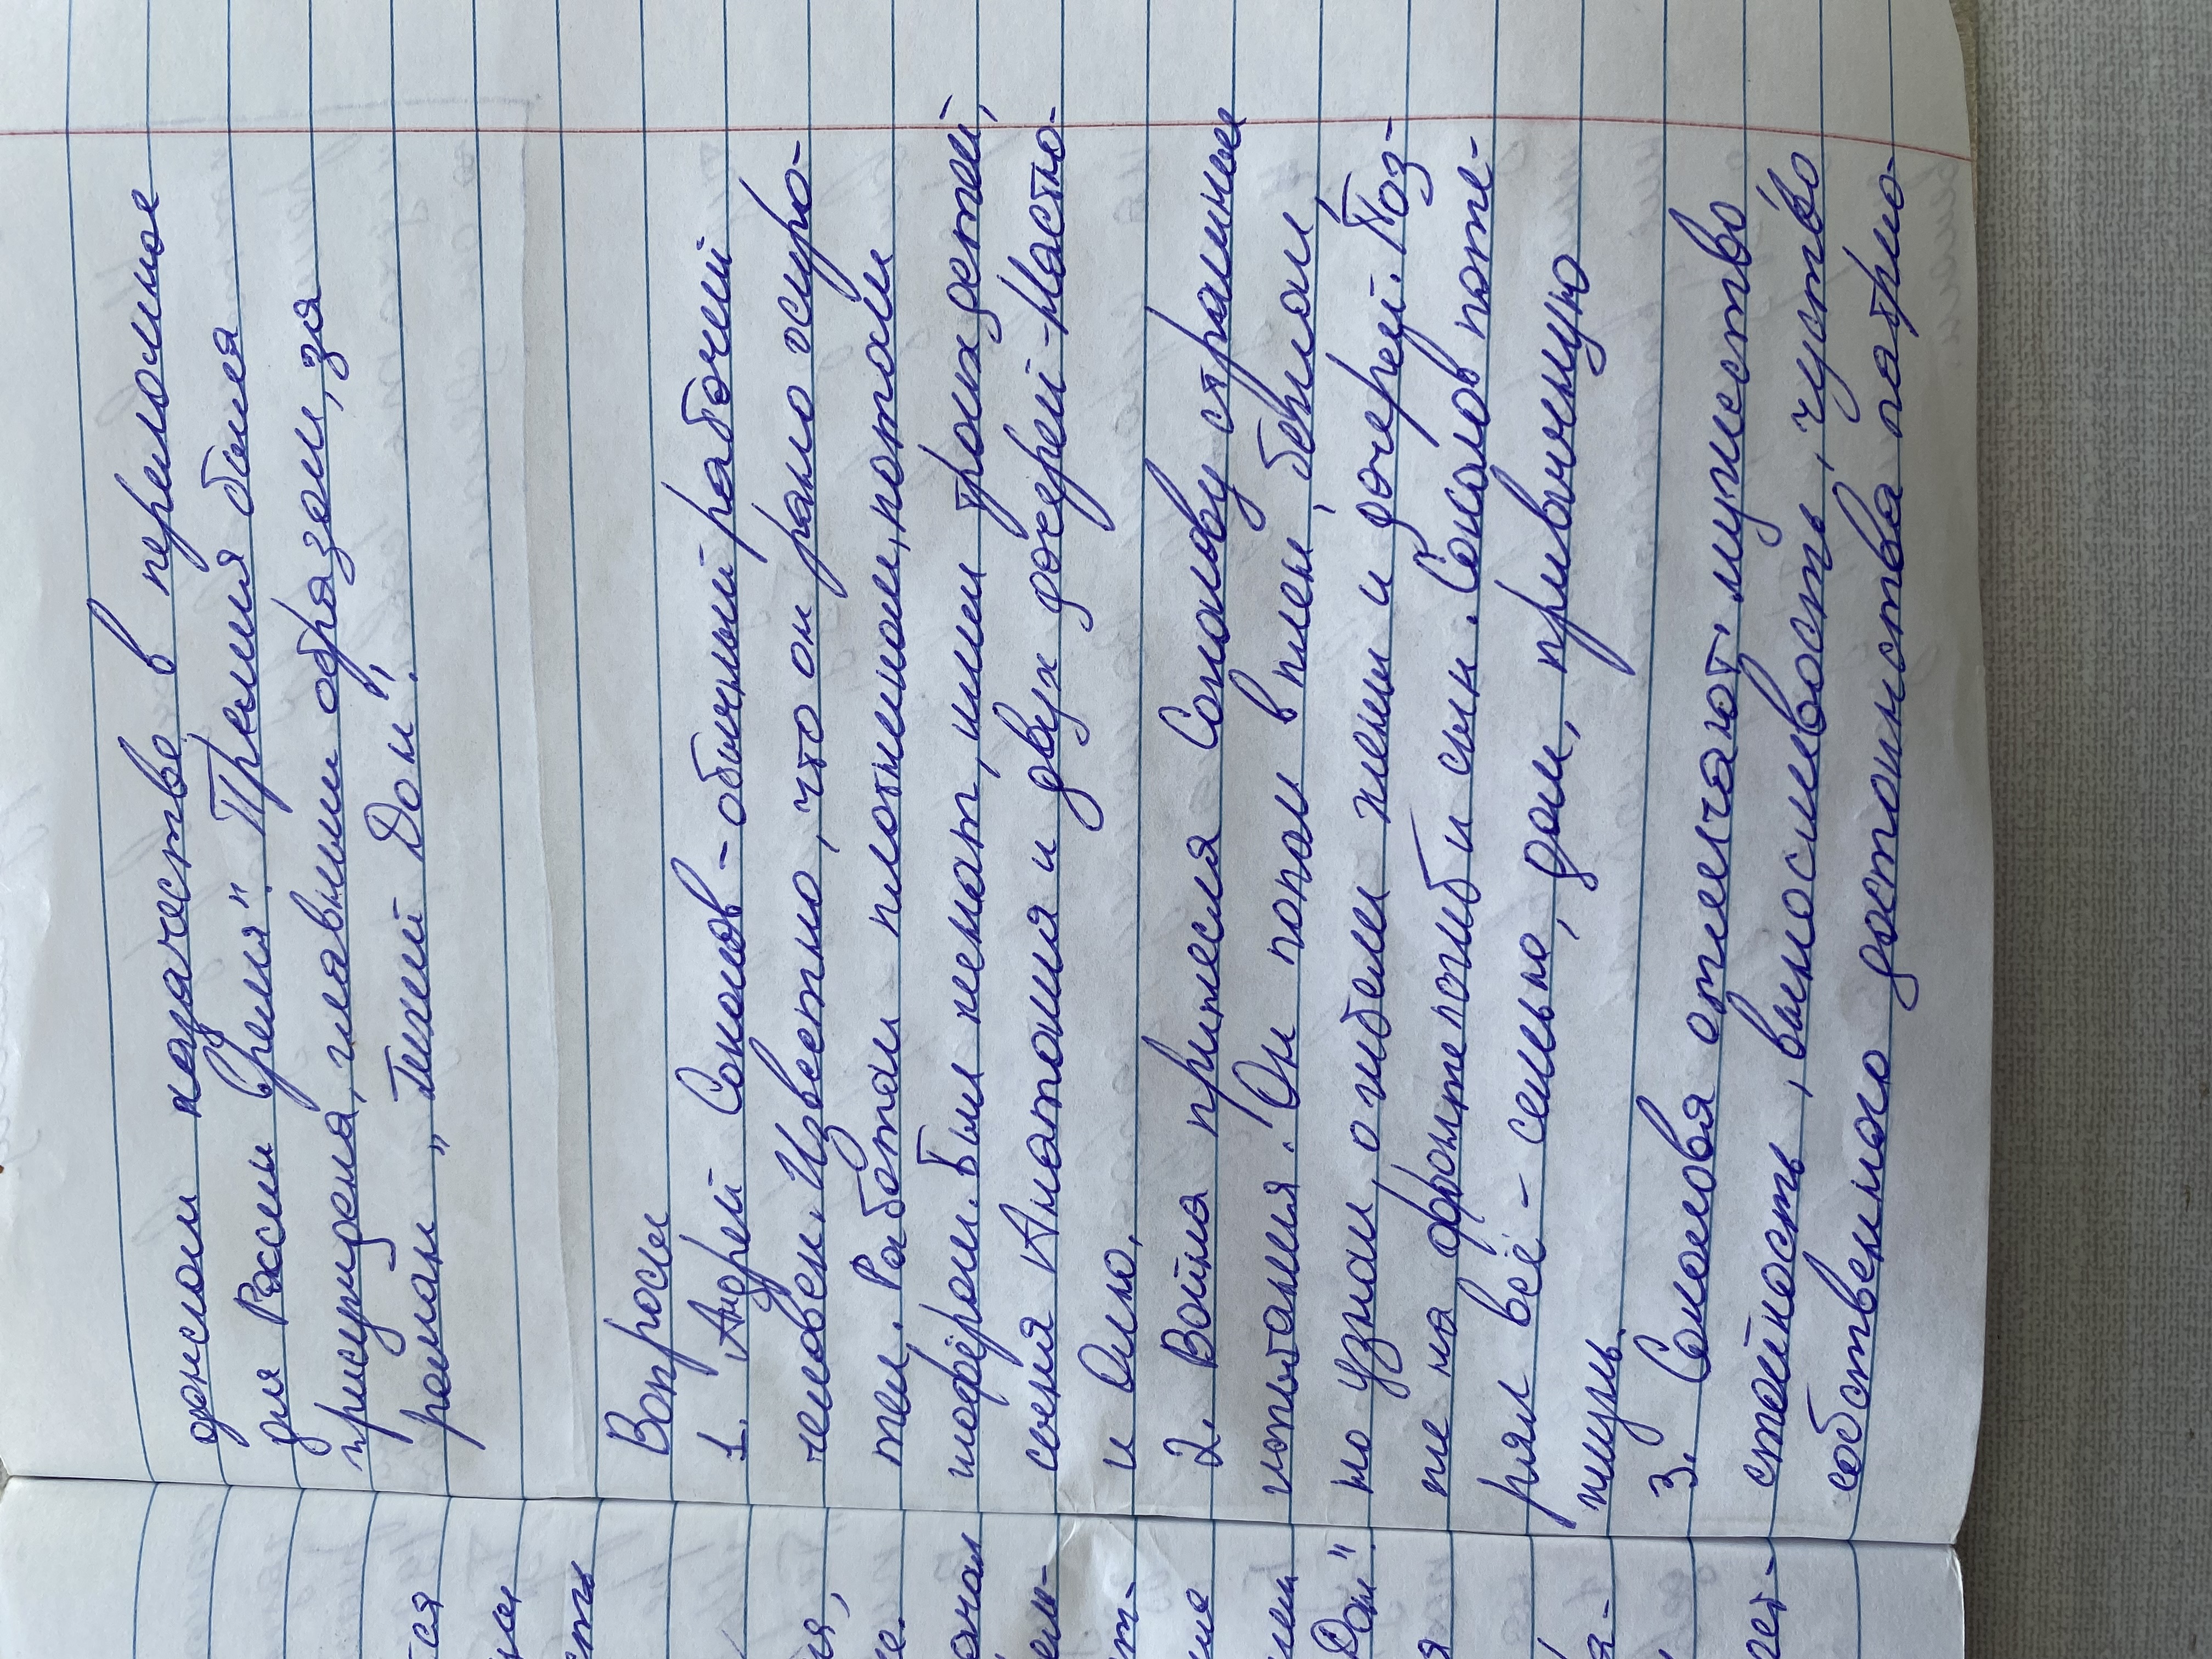 донском казачестве в переломное
для Росии время". Премия была
присуждена, главным образом, за
роман „Тихий Дон".
Вопросы
1. Андрей Соколов - обычный рабочий
человек. Известно, что он рано осиро-
тел. Работал плотником, потом
шофёром. Был женат, имел троих детей,
сына Анатолия и двух дочерей - Настю-
и Олю.
2. Война принесла Соколову страшные
испытания. Он попал в плен, бежал,
но узнал, о гибели жены и дочерей. Поз-
же на фронте погиб и сын. Соколов поте-
рял всё - семью, дом, привычную
жизнь.
3. Соколова отличают: мужество
стойкость, выносливость, чуство
собственного достоинства патрио-
тся
сть
ия,
не.
ечал
ель-
т-
ние
Дон"
я
я-
чет-